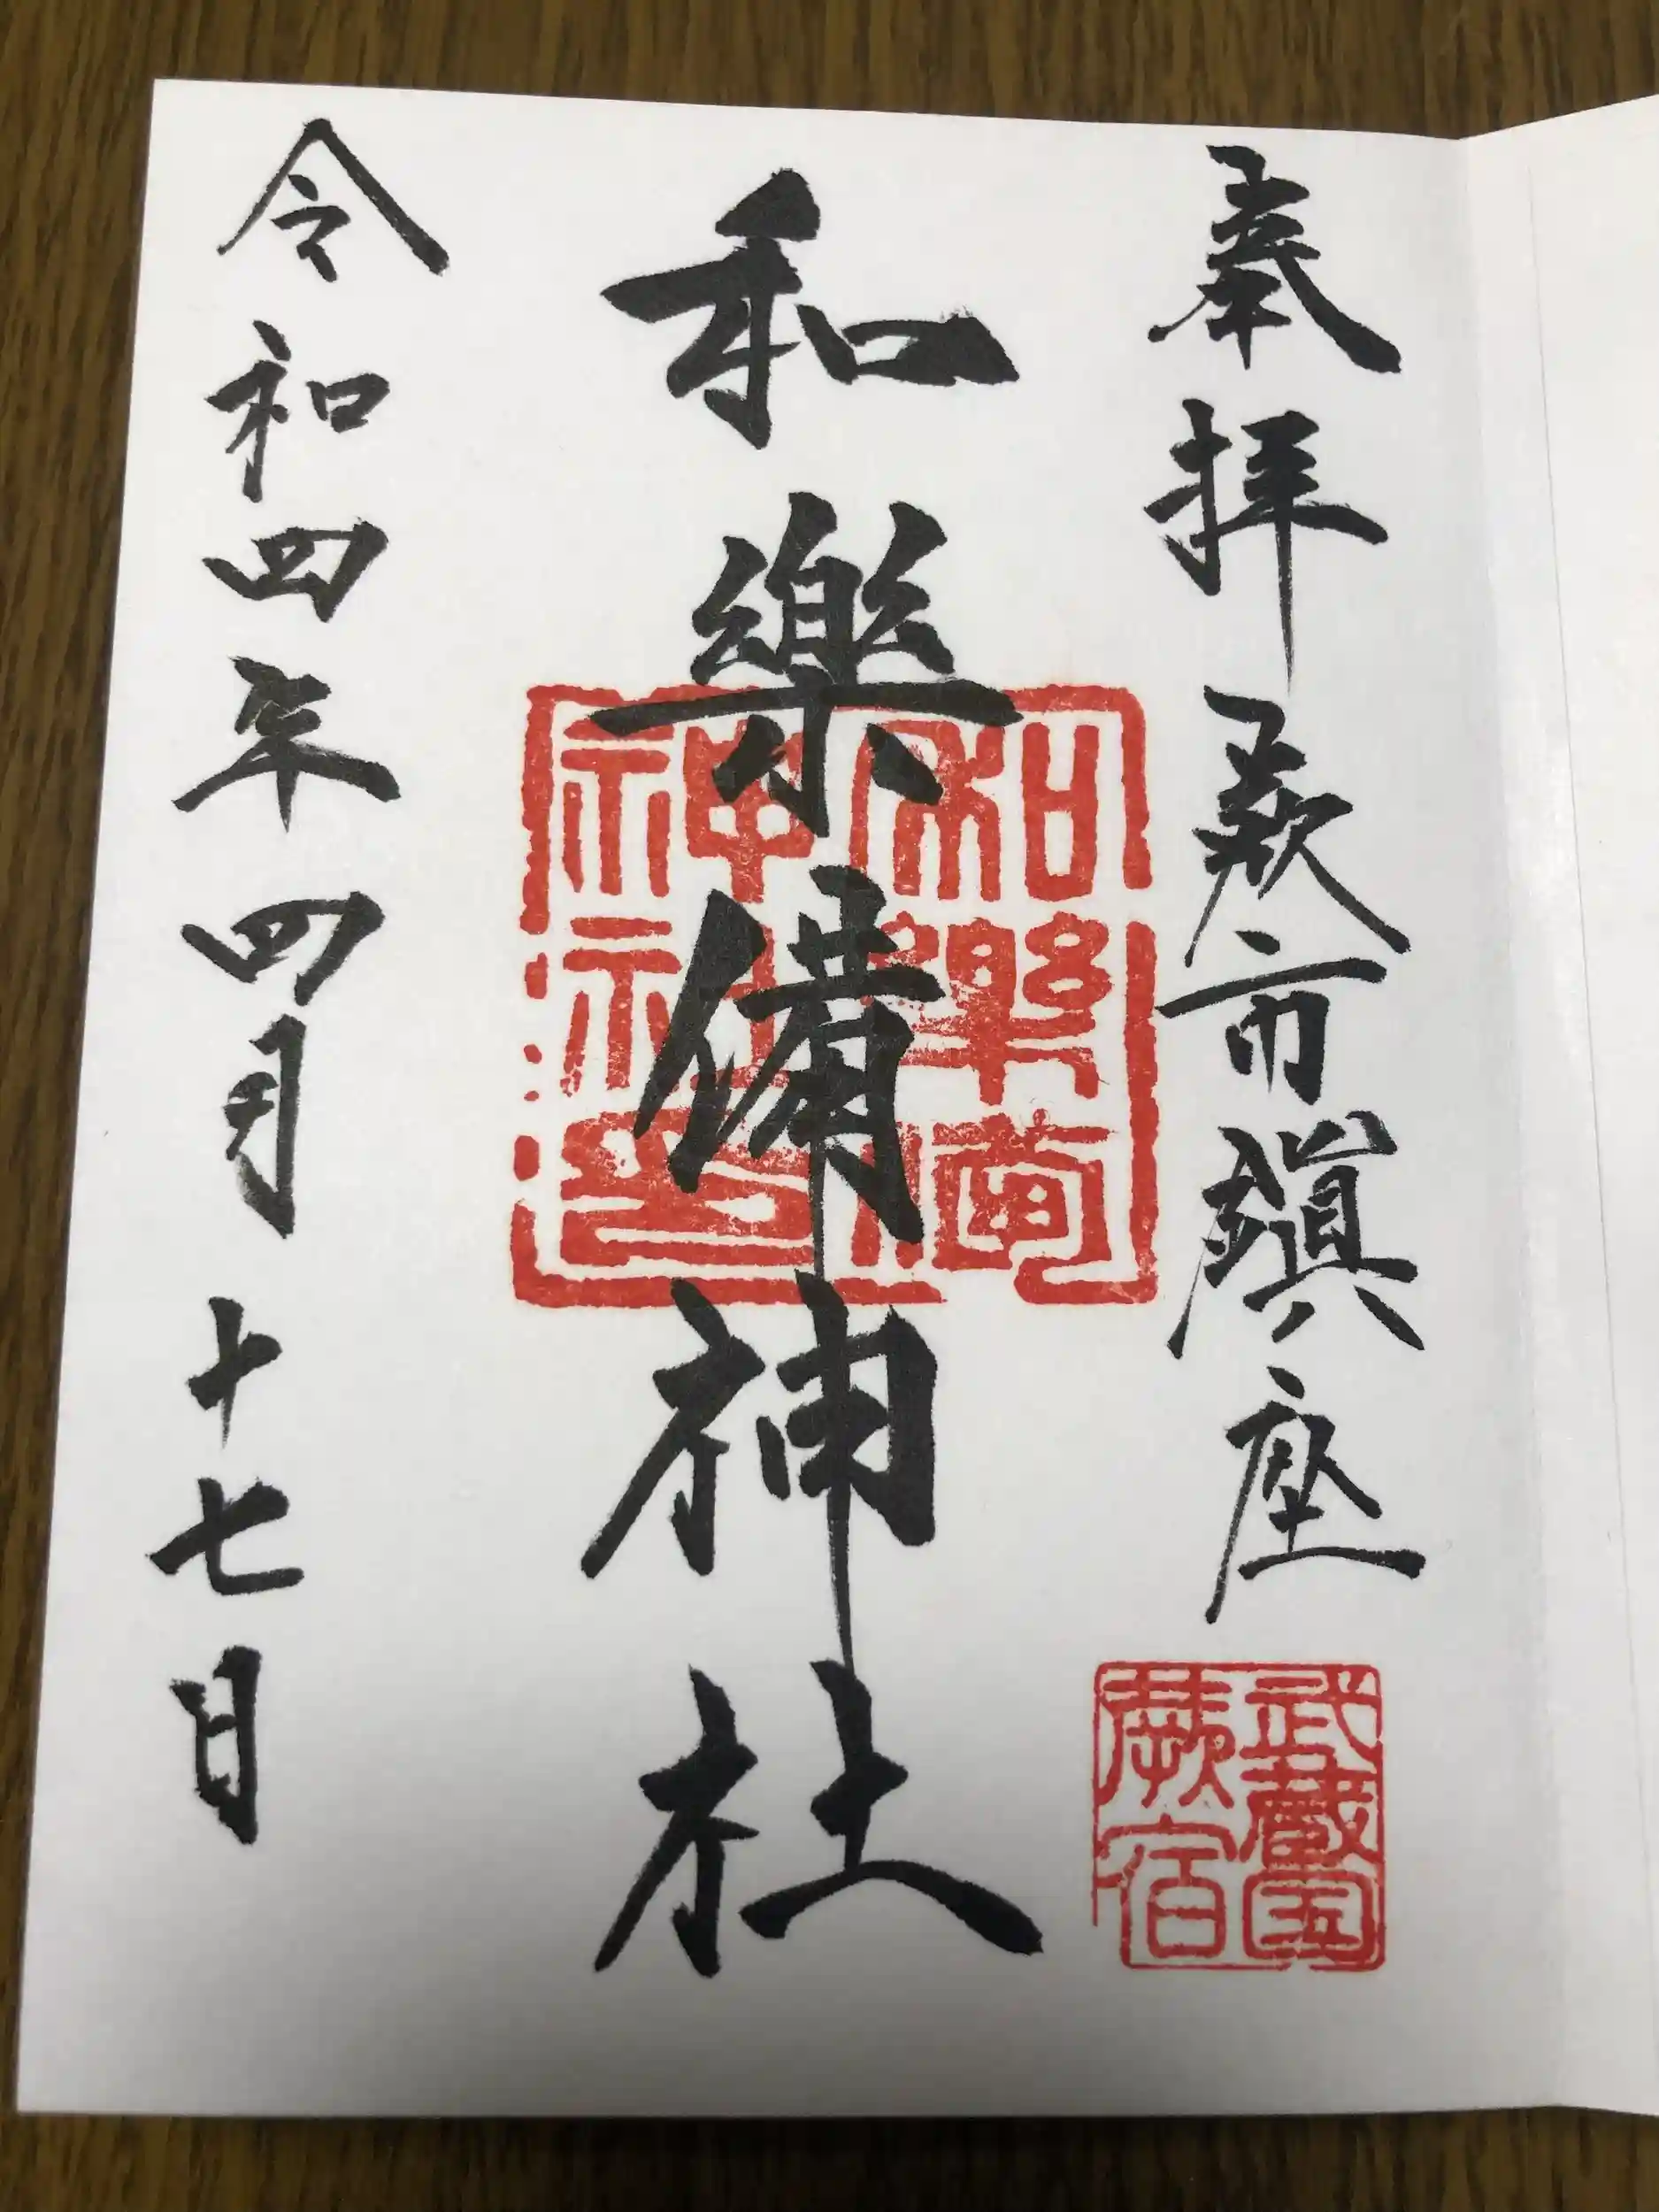 奉拝 蕨市鎮座
武蔵国
蕨宿
和樂備神社
和樂備
神社印
令和四年四月十七日